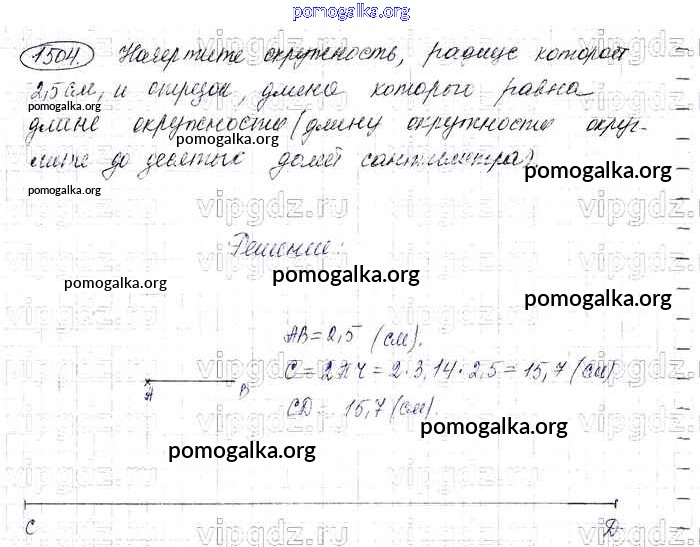 pomogalka.org
1504. Начертите окружность, радиус которой
2,5 см, и отрезок, длина которого равна
pomogalka.org
длине окружности (длину окружности окру-
pomogalka.org
глите до десятых долей сантиметра)
pomogalka.org
pomogalka.org
vipgdz.ru vipgdz.ru vipgdz.ru
Решение:
pomogalka.org
pomogalka.org
pomogalka.org
AB = 2,5 (см).
C = 2πr = 2·3,14·2,5 = 15,7 (см)
A B
CD = 15,7 (см).
pomogalka.org
pomogalka.org
C D
vipgdz.ru vipgdz.ru vipgdz.ru